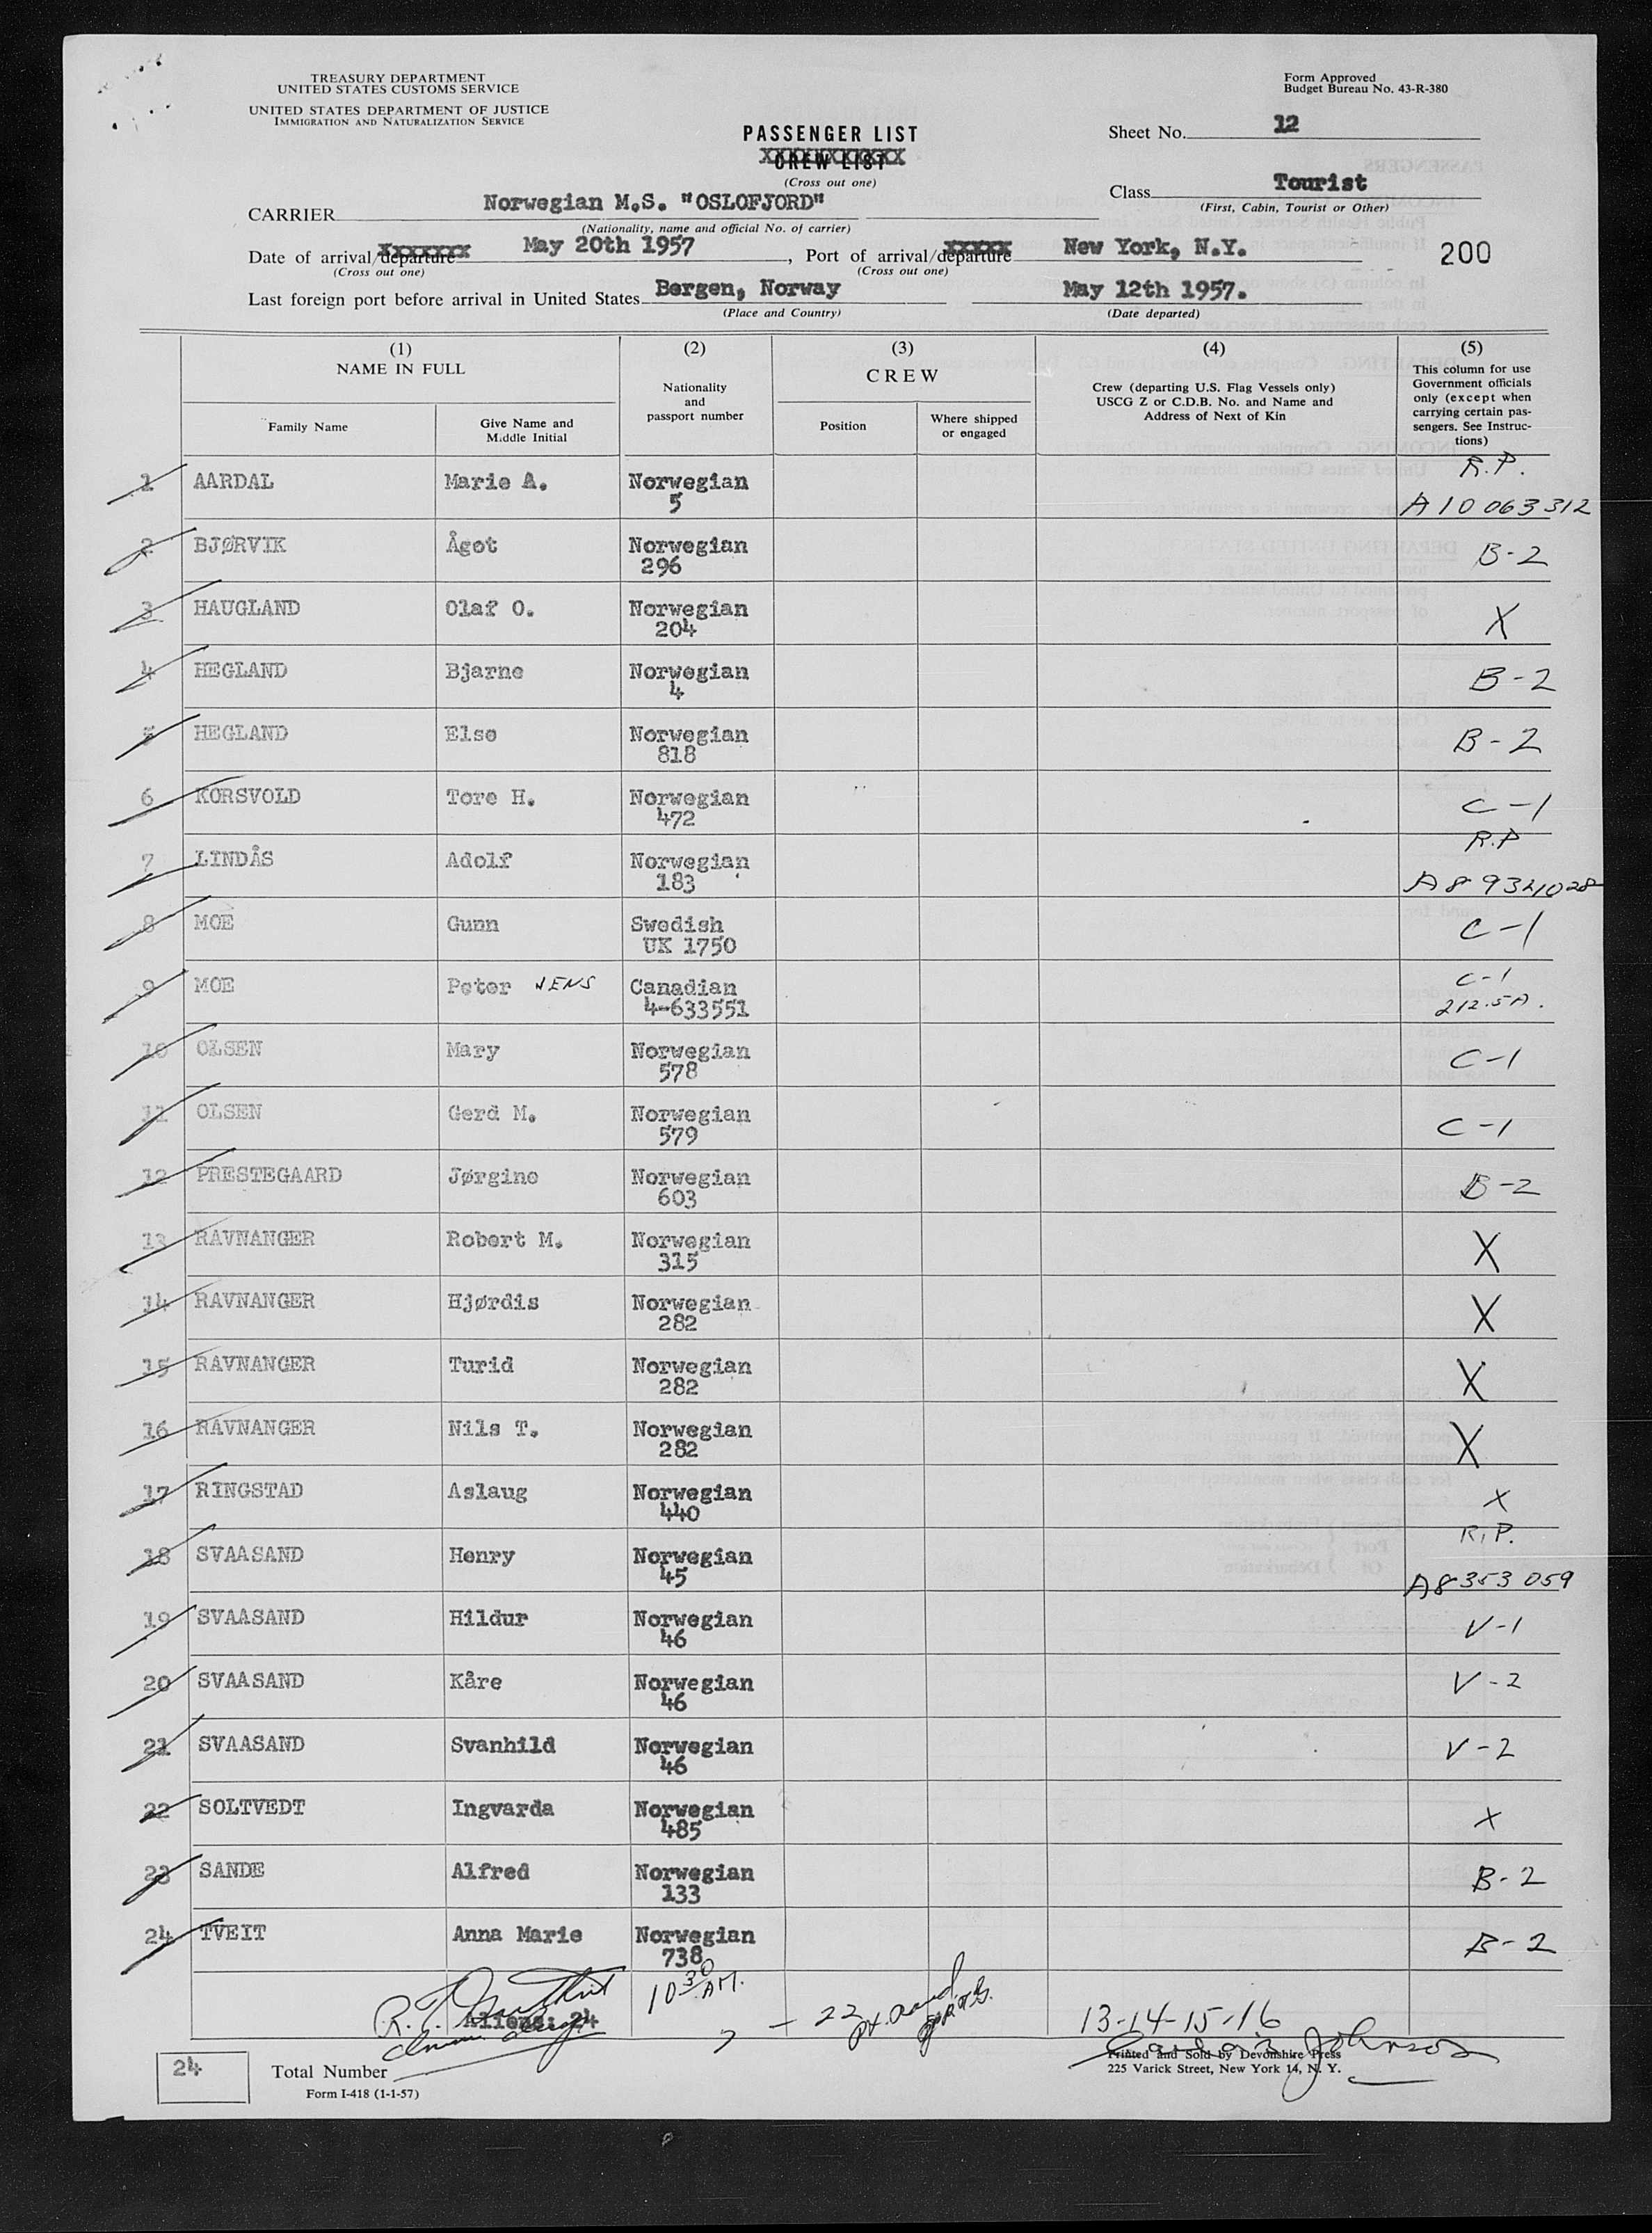 TREASURY DEPARTMENT
UNITED STATES CUSTOMS SERVICE
UNITED STATES DEPARTMENT OF JUSTICE
IMMIGRATION AND NATURALIZATION SERVICE
Form Approved
Budget Bureau No. 43-R-380
PASSENGER LIST
CREW LIST
(Cross out one)
Sheet No. 12
Class Tourist
(First, Cabin, Tourist or Other)
CARRIER Norwegian M.S. "OSLOFJORD"
(Nationality, name and official No. of carrier)
Date of arrival/departure May 20th 1957, Port of arrival/departure New York, N.Y.
200
(Cross out one) (Cross out one)
Last foreign port before arrival in United States Bergen, Norway May 12th 1957.
(Place and Country) (Date departed)
(1) (2) (3) (4) (5)
NAME IN FULL
Family Name
Give Name and
Middle Initial
Nationality
and
passport number
CREW
Position
Where shipped
or engaged
Crew (departing U.S. Flag Vessels only)
USCG Z or C.D.B. No. and Name and
Address of Next of Kin
This column for use
Government officials
only (except when
carrying certain pas-
sengers. See Instruc-
tions)
1 AARDAL Marie A. Norwegian R.P.
5 A10 063312
2 BJØRVIK Ågot Norwegian B-2
296
3 HAUGLAND Olaf O. Norwegian X
204
4 HEGLAND Bjarne Norwegian B-2
4
5 HEGLAND Else Norwegian B-2
818
6 KORSVOLD Tore H. Norwegian C-1
472
7 LINDÅS Adolf Norwegian R.P
183
8 MOE Gunn Swedish C-1
UK 1750
9 MOE Peter JENS Canadian C-1
4-633551 212.5A.
10 OLSEN Mary Norwegian C-1
578
11 OLSEN Gerd M. Norwegian C-1
579
12 PRESTEGAARD Jørgine Norwegian B-2
603
13 RAVNANGER Robert M. Norwegian X
315
14 RAVNANGER Hjørdis Norwegian X
282
15 RAVNANGER Turid Norwegian X
282
16 RAVNANGER Nils T. Norwegian X
282
17 RINGSTAD Aslaug Norwegian X
440
18 SVAASAND Henry Norwegian R.P.
45 A8 353 059
19 SVAASAND Hildur Norwegian V-1
46
20 SVAASAND Kåre Norwegian V-2
46
21 SVAASAND Svanhild Norwegian V-2
46
22 SOLTVEDT Ingvarda Norwegian X
485
23 SANDE Alfred Norwegian B-2
133
24 TVEIT Anna Marie Norwegian B-2
738
Aliens: 24
10 30 AM.
- 22
13-14-15-16
Johnson
24
Total Number
Form I-418 (1-1-57)
Printed and Sold by Devonshire Press
225 Varick Street, New York 14, N. Y.